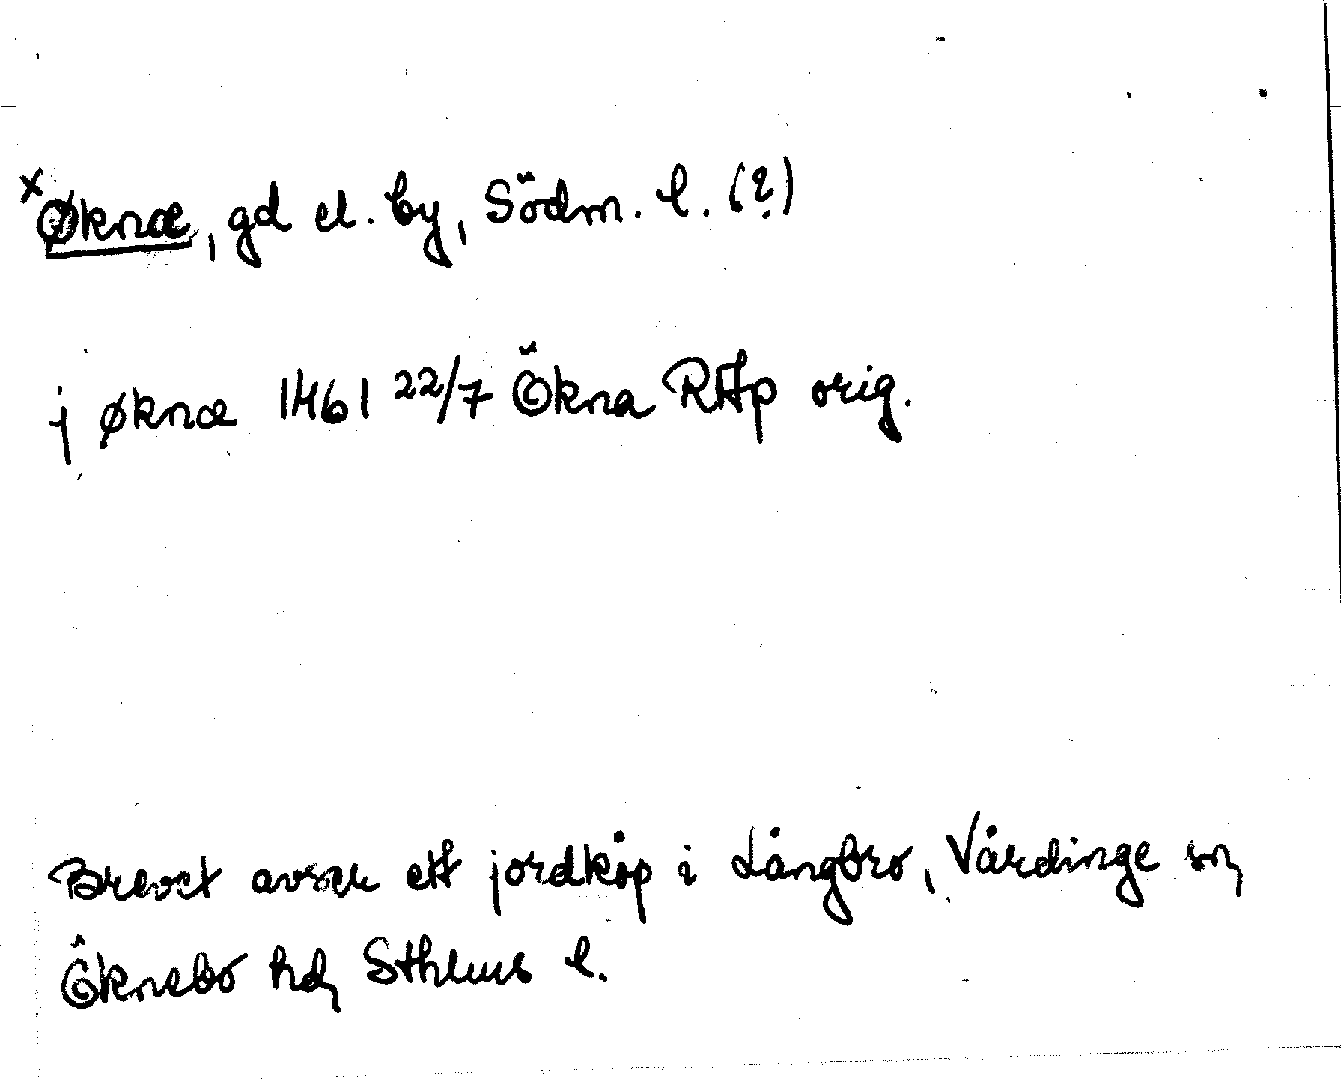 x Øknæ, gd el. by, Södm. l. (?)
j øknæ 1461 22/7 Ökna RAp orig.
Brevet avser ett jordköp i Långbro, Vårdinge sn,
Öknebo hd, Sthlms l.